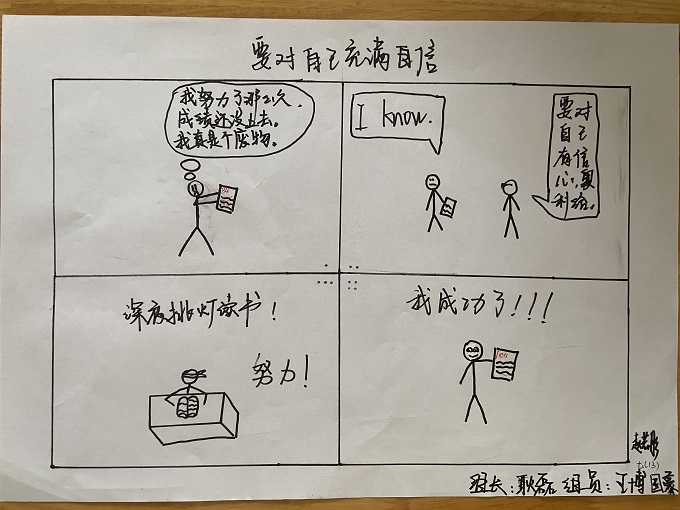 要对自己充满自信
我努力了那么久,
成绩还没上去。
我真是个废物。
I know.
要对
自己
有信
心,要
利落。
深夜挑灯读书!
努力!
我成功了!!!
100
组长:耿磊 组员:王博国豪